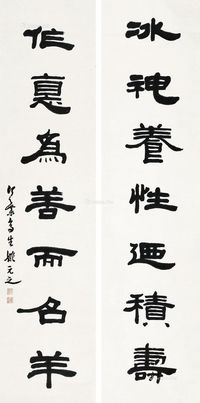 冰神養性迺積壽
作惪為善而名羊
竹葉亭生姚元之